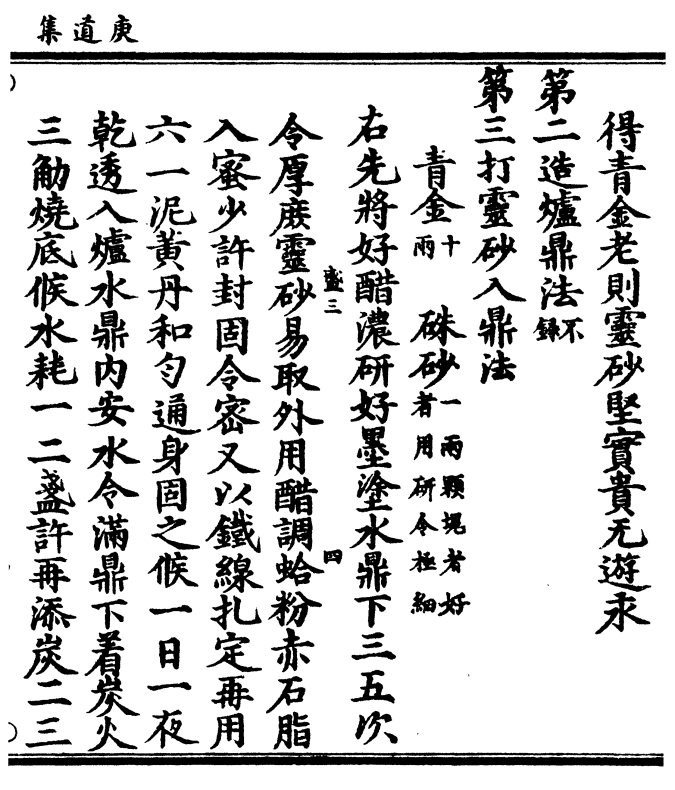 庚道集
得青金老則靈砂堅實貴无遊汞
第二造爐鼎法不錄
第三打靈砂入鼎法
青金十兩 硃砂一兩顆塊者好者用研令極細
右先將好醋濃研好墨塗水鼎下三五次
令厚庻靈砂易取外用醋調蛤粉赤石脂
盛三 四
入蜜少許封固令密又以鐵線扎定再用
六一泥黃丹和勻通身固之候一日一夜
乾透入爐水鼎內安水令滿鼎下着炭火
三觔燒底候水耗一二盞許再添炭二三